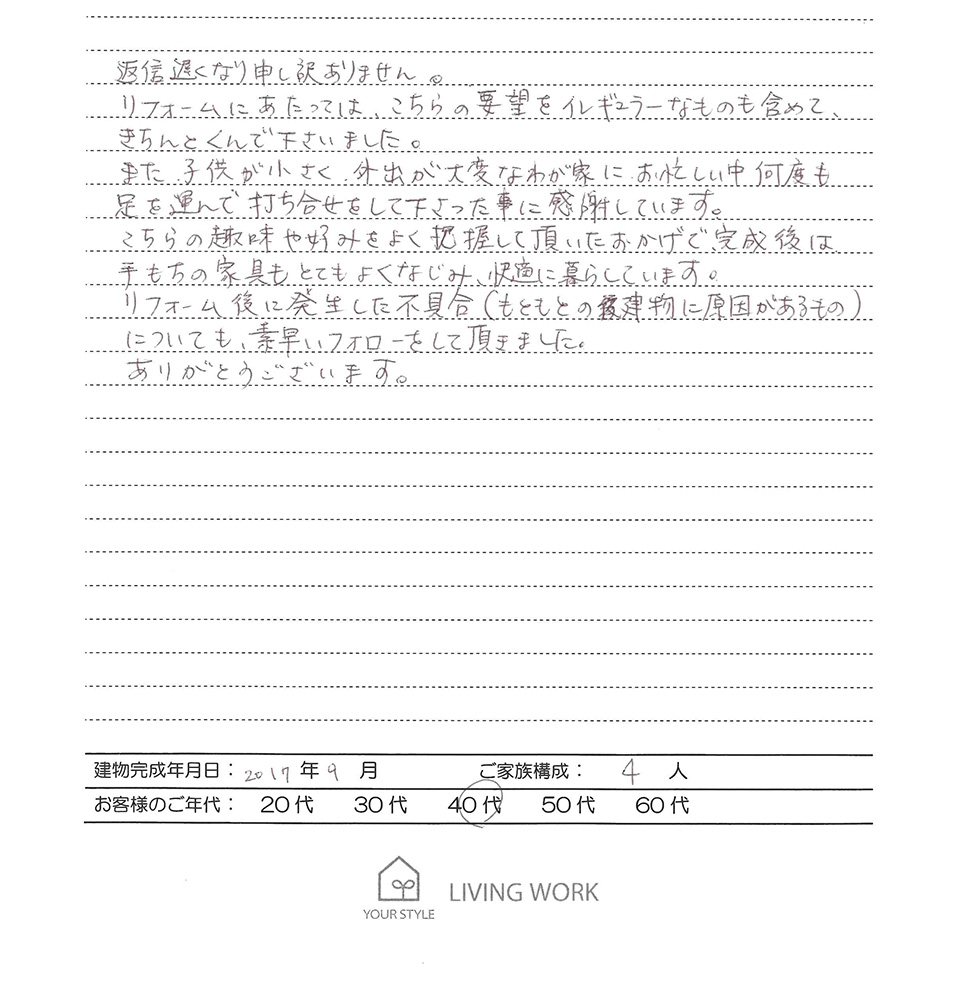 返信遅くなり申し訳ありません。
リフォームにあたっては、こちらの要望をイレギュラーなものも含めて、
きちんとくんで下さいました。
また、子供が小さく、外出が大変なわが家に、お忙しい中何度も
足を運んで打ち合せをして下さった事に感謝しています。
こちらの趣味や好みをよく把握して頂いたおかげで、完成後は
手もちの家具もとてもよくなじみ、快適に暮らしています。
リフォーム後に発生した不具合(もともとの建物に原因があるもの)
についても、素早いフォローをして頂きました。
ありがとうございます。
建物完成年月日： 2017 年 9 月 ご家族構成： 4 人
お客様のご年代： 20代 30代 40代 50代 60代
YOUR STYLE LIVING WORK